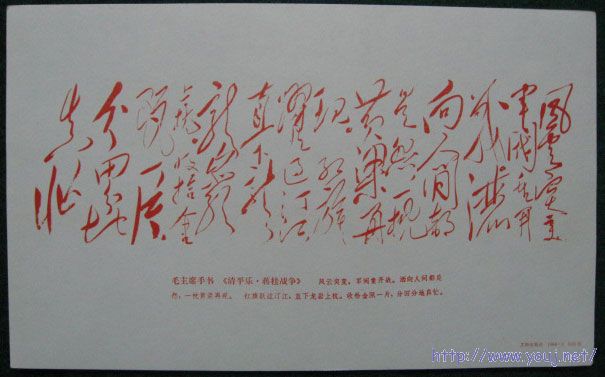 風雲突变
軍阀重开
战洒
向人间都
是怨一枕
黄粱再
现红旗
躍过汀江
直下
龍岩
上杭收拾金
瓯一片
分田分地
真忙
毛主席手书 《清平乐·蒋桂战争》 风云突变，军阀重开战。洒向人间都是
怨，一枕黄粱再现。 红旗跃过汀江，直下龙岩上杭。收拾金瓯一片，分田分地真忙。
文物出版社
http://www.youj.net/